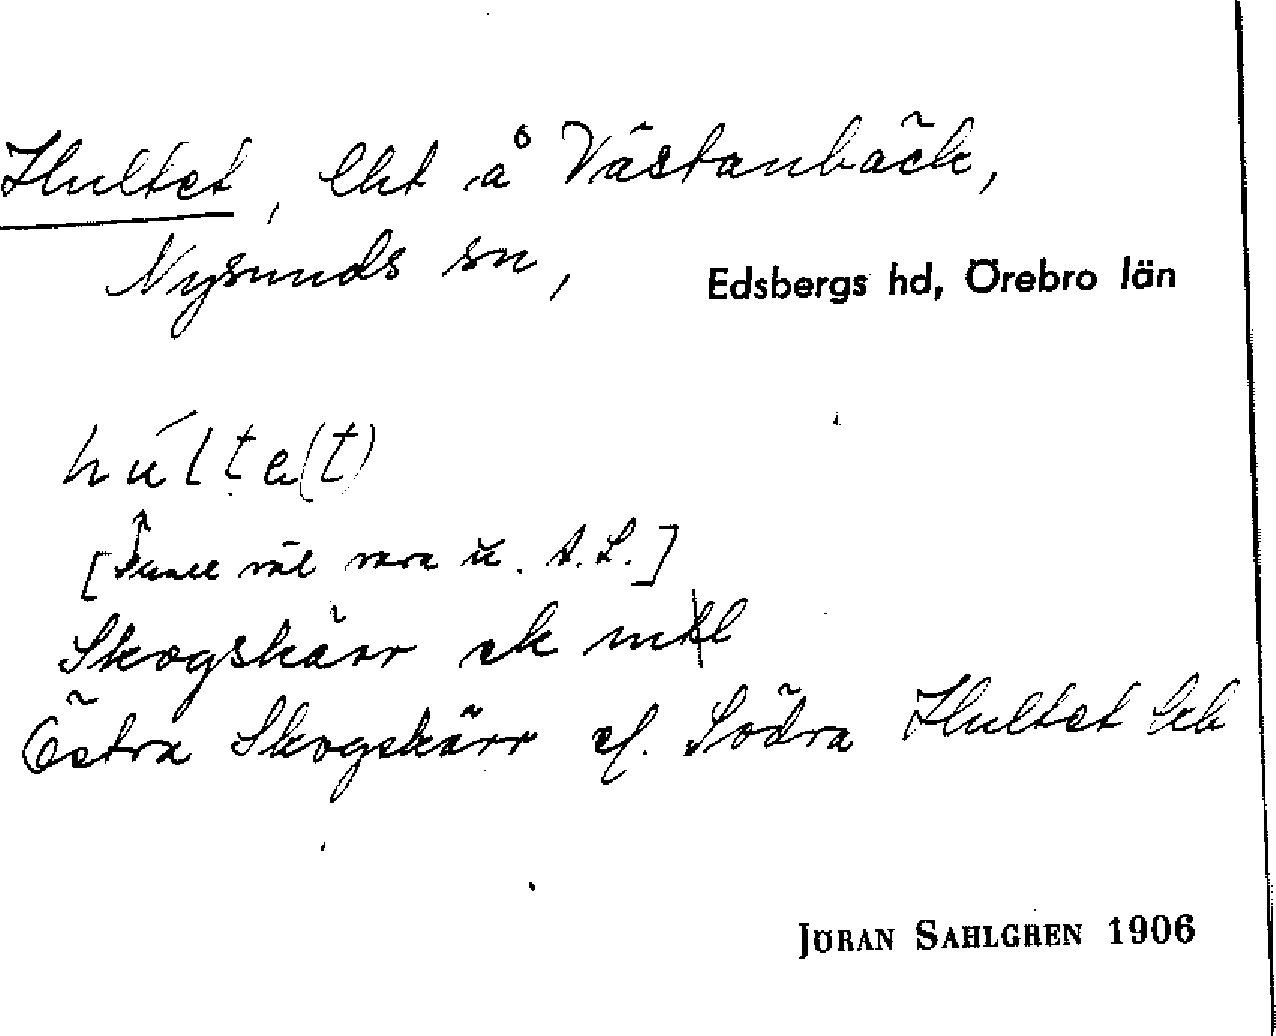 Hultet, lht å Västanbäck,
Nysunds sn, Edsbergs hd, Örebro län
húlte(t)
[ väl vara u. S.]
Skogskärr ek
Östra Skogskärr el. Södra Hultet
JÖRAN SAHLGREN 1906